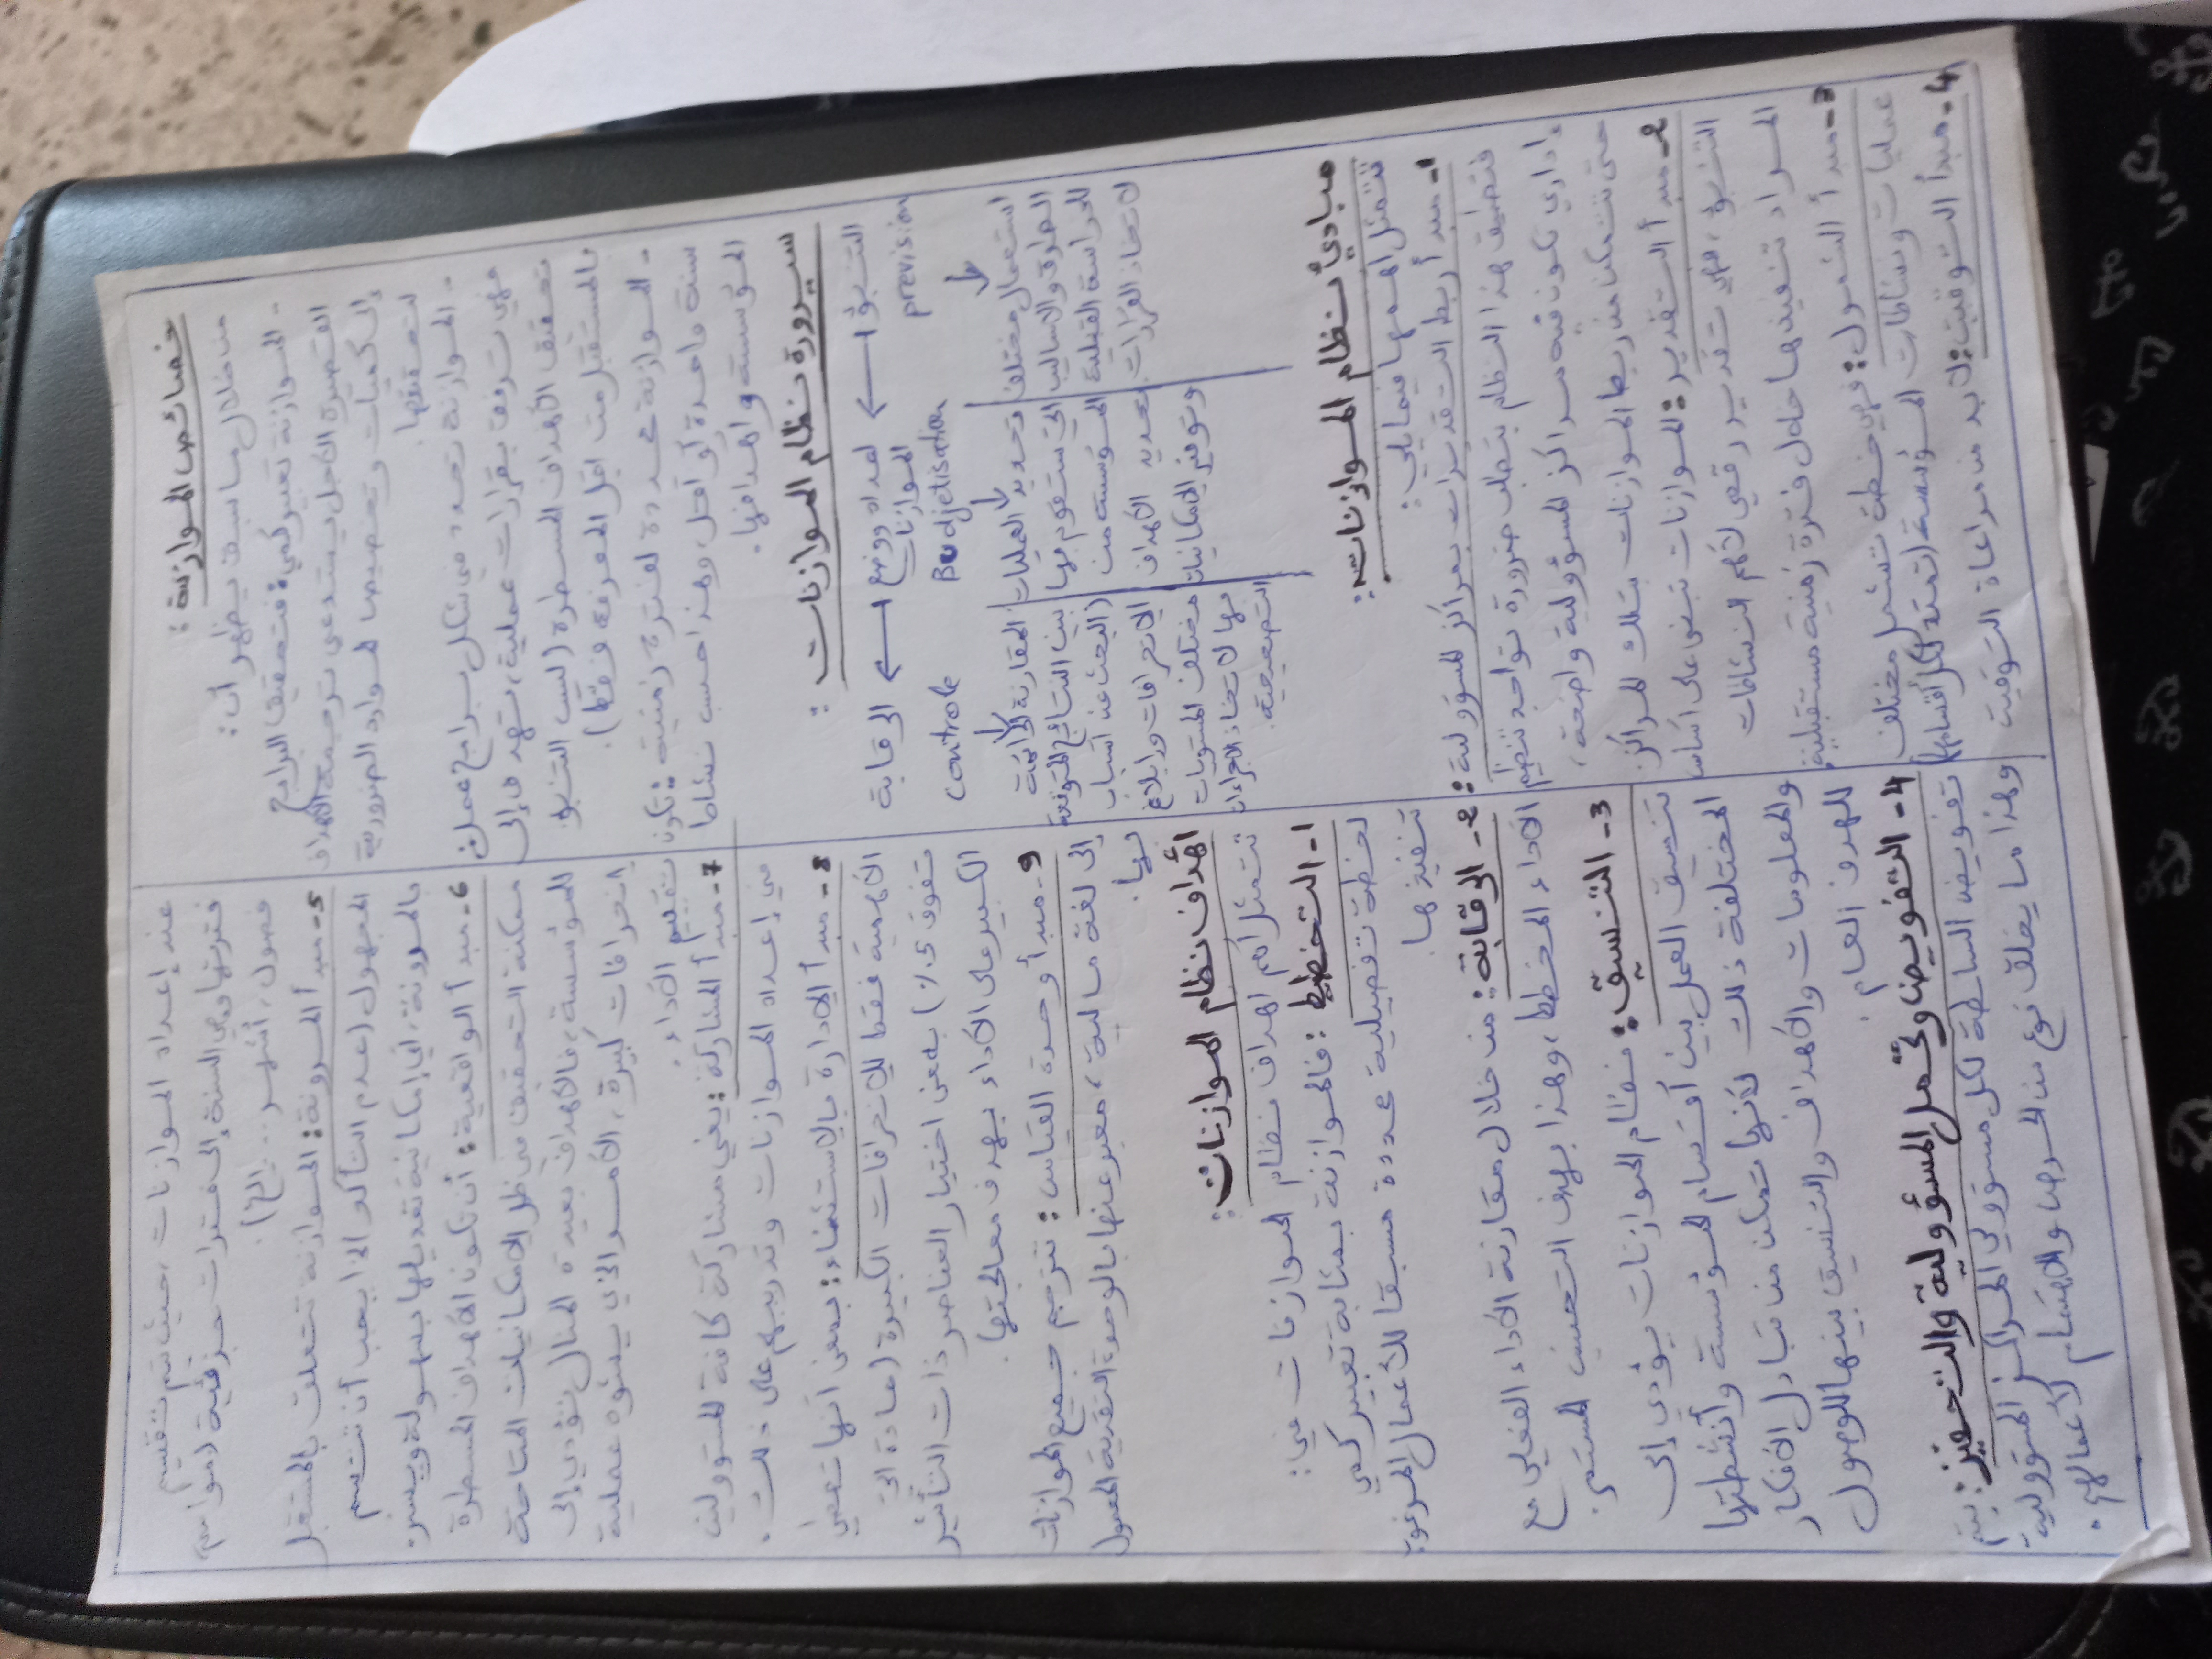 خصائص الموازنة :
من خلال ما سبق يظهر أن :
- الموازنة تعبير كمي: فتحقيق البرامج
القصيرة الاجل يستدعي ترجمة الأهداف
إلى كميات وتخصيص الموارد الضرورية
لتحقيقها.
- الموازنة تحدد في شكل برامج عمل:
فهي ترفق بقرارات عملية، تهدف إلى
تحقيق الأهداف المسطرة (ليس التنبؤ
بالمستقبل من اجل المعرفة فقط).
- الموازنة محددة لفترة زمنية : تكون
سنة واحدة أو أقل، وهذا حسب نشاط
المؤسسة وأهدافها.
سيرورة نظام الموازنات :
التنبؤ ← إعداد ووضع الموازنات ← الرقابة
prevision Budjetisation controle
استعمال مختلف
الطرق والاساليب
للدراسة القبلية
لاتخاذ القرارات
تحديد العمليات
التي ستقوم بها
المؤسسة من
تحديد الأهداف
وتوفير الامكانيات
المقارنة الدائمة
بين النتائج المتوقعة
(البحث عن أسباب
الانحرافات وإبلاغ
مختلف المستويات
بها لاتخاذ الاجراءات
التصحيحية.
مبادئ نظام الموازنات :
تتمثل أهمها فيما يلي :
1- مبدأ ربط التقديرات بمراكز المسؤولية :
فتطبيق هذا النظام يتطلب ضرورة تواجد تنظيم
إداري تكون فيه مراكز المسؤولية واضحة،
حتى نتمكن من ربط الموازنات بتلك المراكز
2- مبدأ التقدير: الموازنات تبنى على أساس
التنبؤ، فهي تقدير رقمي لأهم النشاطات
المراد تنفيذها خلال فترة زمنية مستقبلية.
3- مبدأ الشمول: فهي خطة تشمل مختلف
عمليات ونشاطات المؤسسة (تمتد لكل أقسامها)
4- مبدأ التوقيت: لابد من مراعاة التوقيت
عند إعداد الموازنات، حيث تم تقسيم
فترتها وهي السنة إلى فترات جزئية (مواسم
فصول، أشهر...إلخ).
5- مبدأ المرونة: الموازنة تتعلق بالمستقبل
المجهول (عدم التأكد) لذا يجب أن تتسم
بالمرونة، أي إمكانية تعديلها بسهولة ويسر.
6- مبدأ الواقعية: أن تكون الأهداف المسطرة
ممكنة التحقيق في ظل الامكانيات المتاحة
للمؤسسة، فالأهداف بعيدة المنال تؤدي إلى
إنحرافات كبيرة، الأمر الذي يشوه عملية
تقييم الأداء.
7- مبدأ المشاركة: يعني مشاركة كافة المسؤولين
في إعداد الموازنات وتدريبهم على ذلك.
8- مبدأ الإدارة بالاستثناء: بمعنى أنها تعطي
الأهمية فقط للإنحرافات الكبيرة (عادة التي
تفوق 5٪) بمعنى اختيار العناصر ذات التأثير
الكبير على الأداء بهدف معالجتها.
9- مبدأ وحدة القياس: تترجم جميع الموازنات
إلى لغة مالية، معبر عنها بالوحدة النقدية المعمول
بها.
أهداف نظام الموازنات:
تتمثل أهم أهداف نظام الموازنات في:
1- التخطيط : فالموازنة بمثابة تعبير كمي
لخطة تفصيلية محددة مسبقا للأعمال المرغوب
تنفيذها.
2- الرقابة: من خلال مقارنة الأداء الفعلي مع
الأداء المخطط، وهذا بهدف التحسين المستمر.
3- التنسيق: نظام الموازنات يؤدي إلى
تنسيق العمل بين أقسام المؤسسة وأنشطتها
المختلفة ذلك لأنها تمكن من تبادل الأفكار
والمعلومات والأهداف والتنسيق بينها للوصول
للهدف العام.
4- التفويض وتحمل المسؤولية والتحفيز: يتم
تفويض السلطة لكل مسؤولي المراكز المسؤولية
وهذا ما يخلق نوع من الحرص والاهتمام لأعمالهم.